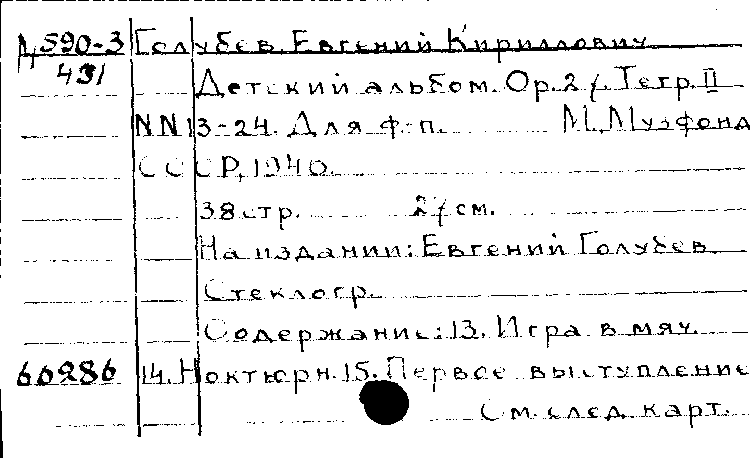 Д590-3 Голубев Евгений Кириллович
431 Детский альбом. Ор.27. Тетр. II
NN13-24. Для ф-п. М., Музфонд
СССР, 1940.
38 стр. 27 см.
На издании: Евгений Голубев
Стеклогр.
Содержание: 13. Игра в мяч.
60286 14. Ноктюрн. 15. Первое выступление
См. след. карт.